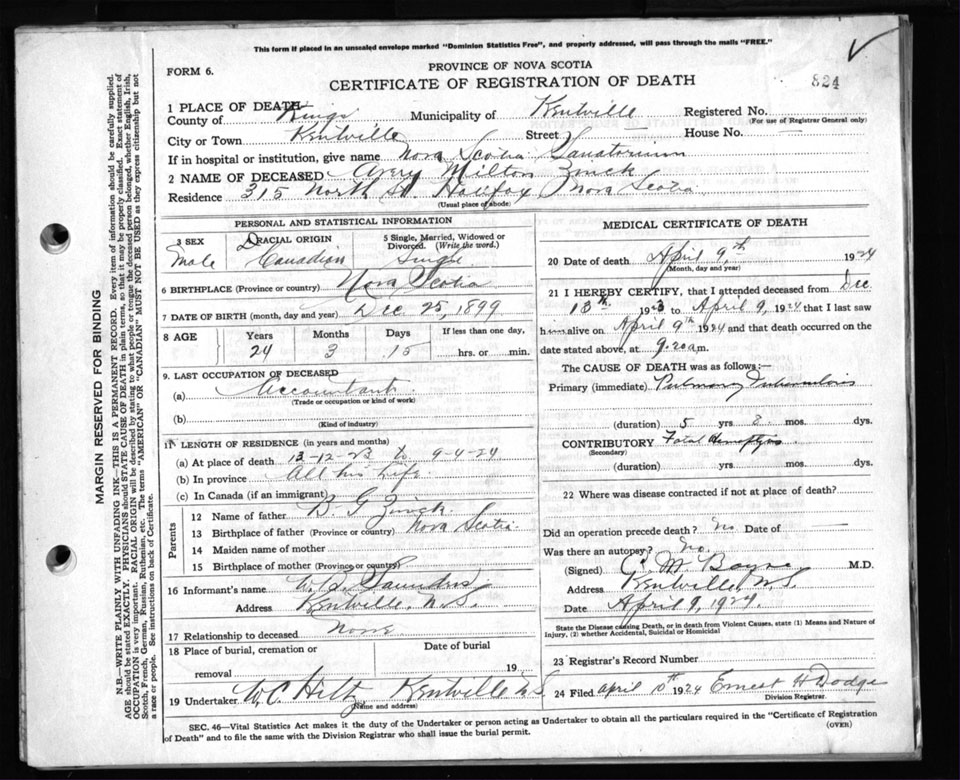 This form if placed in an unsealed envelope marked "Dominion Statistics Free", and properly addressed, will pass through the mails "FREE."
PROVINCE OF NOVA SCOTIA
FORM 6.
CERTIFICATE OF REGISTRATION OF DEATH
824
1 PLACE OF DEATH
County of Kings Municipality of Kentville Registered No.
(For use of Registrar General only)
City or Town Kentville Street — House No. —
If in hospital or institution, give name Nova Scotia Sanatorium
2 NAME OF DECEASED Avery Milton Zinck
Residence 315 North St. Halifax Nova Scotia
(Usual place of abode)
PERSONAL AND STATISTICAL INFORMATION
3 SEX
Male
RACIAL ORIGIN
Canadian
5 Single, Married, Widowed or Divorced. (Write the word.)
Single
6 BIRTHPLACE (Province or country) Nova Scotia
7 DATE OF BIRTH (month, day and year) Dec 25, 1899
8 AGE Years Months Days If less than one day,
24 3 15 hrs. or min.
9. LAST OCCUPATION OF DECEASED
(a) Accountant
(Trade or occupation or kind of work)
(b)
(Kind of industry)
11 LENGTH OF RESIDENCE (in years and months)
(a) At place of death 13-12-23 to 9-4-24
(b) In province All his life
(c) In Canada (if an immigrant)
Parents
12 Name of father B. G Zinck
13 Birthplace of father (Province or country) Nova Scotia
14 Maiden name of mother
15 Birthplace of mother (Province or country)
16 Informant's name Saunders
Address Kentville, N.S.
17 Relationship to deceased None
18 Place of burial, cremation or removal
Date of burial
19
19 Undertaker W.C. Hiltz Kentville N.S
(Name and address)
MEDICAL CERTIFICATE OF DEATH
20 Date of death April 9th 1924
(Month, day and year)
21 I HEREBY CERTIFY, that I attended deceased from Dec
13th 1923 to April 9, 1924 that I last saw
him alive on April 9th 1924 and that death occurred on the
date stated above, at 9.20 a m.
The CAUSE OF DEATH was as follows:—
Primary (immediate) Pulmonary Tuberculosis
(duration) 5 yrs 2 mos. dys.
CONTRIBUTORY Fatal
(Secondary)
(duration) yrs mos. dys.
22 Where was disease contracted if not at place of death?
Did an operation precede death? No Date of —
Was there an autopsy? No.
(Signed) C. M Bayne M.D.
Address Kentville, N.S.
Date April 9, 1924.
State the Disease causing Death, or in death from Violent Causes, state (1) Means and Nature of Injury, (2) whether Accidental, Suicidal or Homicidal
23 Registrar's Record Number
24 Filed April 10th 1924 Ernest H Dodge
Division Registrar.
SEC. 46—Vital Statistics Act makes it the duty of the Undertaker or person acting as Undertaker to obtain all the particulars required in the "Certificate of Registration
of Death" and to file the same with the Division Registrar who shall issue the burial permit.
(OVER)
MARGIN RESERVED FOR BINDING
N.B.—WRITE PLAINLY WITH UNFADING INK—THIS IS A PERMANENT RECORD. Every item of information should be carefully supplied.
AGE should be stated EXACTLY. PHYSICIANS should STATE CAUSE OF DEATH in plain terms, so that it may be properly classified. Exact statement of
OCCUPATION is very important. RACIAL ORIGIN will be described by stating to what people or tongue the deceased person belonged, whether English, Irish,
Scotch, French, German, Russian, Ruthenian, etc. The terms "AMERICAN" OR "CANADIAN" MUST NOT BE USED as they express citizenship but not
a race or people. See instructions on back of Certificate.